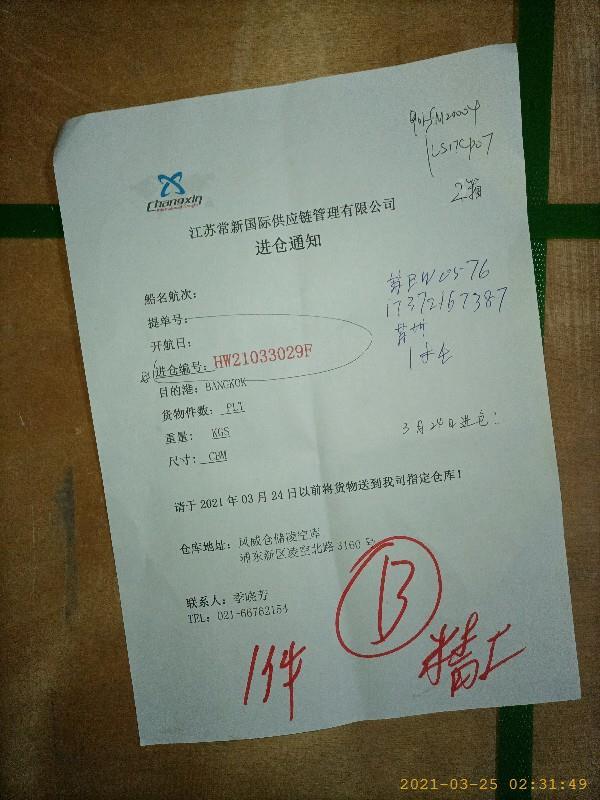 LS17CP07
2箱
Changxin
江苏常新国际供应链管理有限公司
进仓通知
船名航次：
提单号：
开航日：
进仓编号：HW21033029F
目的港：BANGKOK
货物件数：PLT
重量：KGS
尺寸：CBM
苏BW0576
17372167387
3月24日进仓
请于 2021 年 03 月 24 日以前将货物送到我司指定仓库！
仓库地址：风威仓储凌空库
浦东新区凌空北路 3160 号
联系人：季晓芳
TEL：021-66762154
B
1件
精工
2021-03-25 02:31:49